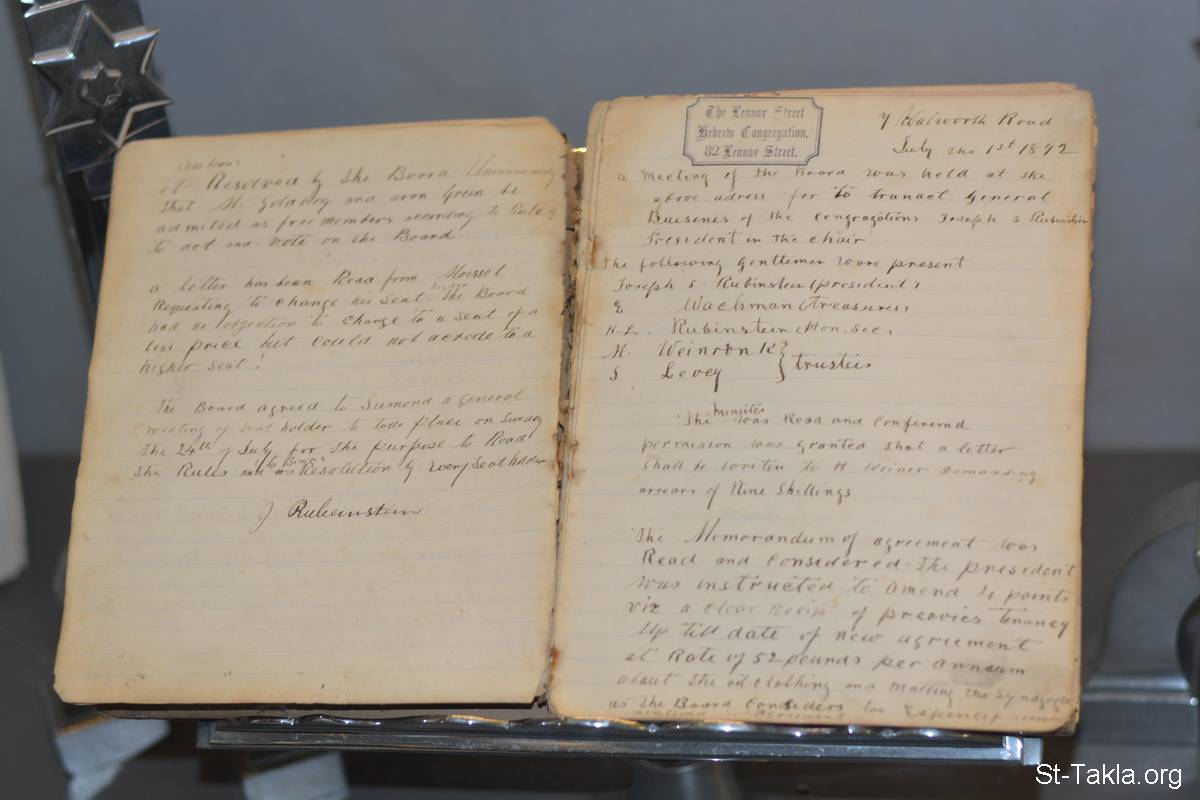 has been
it Resolved by the Board Unanimously
that M. Goldberg and aron Green be
admited as free members according to Rule 9
to act and vote on the Board
a letter has been Read from Moissel
Requesting to change his Seat The Board
had no objection to change to a seat of a
less price but could not accede to a
higher seat!
The Board agreed to Sumond a general
meeting of seat holder to take place on Sunday
the 24th of July for the purpose to Read
the Rules and Resolution by Every Seat holder
J Rubeinstein
The Lennor Street
Hebrew Congregation,
32 Lennor Street.
7 Walworth Road
July the 1st 1892
a Meeting of the Board was held at the
above adress for to transact General
Buisenes of the Congragations Joseph S Rubinstein
President in the chair
The following Gentlemen were present
Joseph S. Rubinstein (president)
E Wachman (treasurer)
H. L. Rubinstein (Hon. Sec.
M. Weinronk } trustees
S Levey
The minutes was Read and Confiremd
permision was granted that a letter
shall be writin to H Weiner Demanding
arrears of Nine Shillings
The Memorandum of agreement was
Read and Considered. The president
was instructed to amend 4 points
viz a Clear Recipt of prearvies tenancy
Up till date of new agreement
at Rate of 52 pounds per annaum
about the oil clothing and Matting the Synagogue
as the Board Considers too
agreement
St-Takla.org